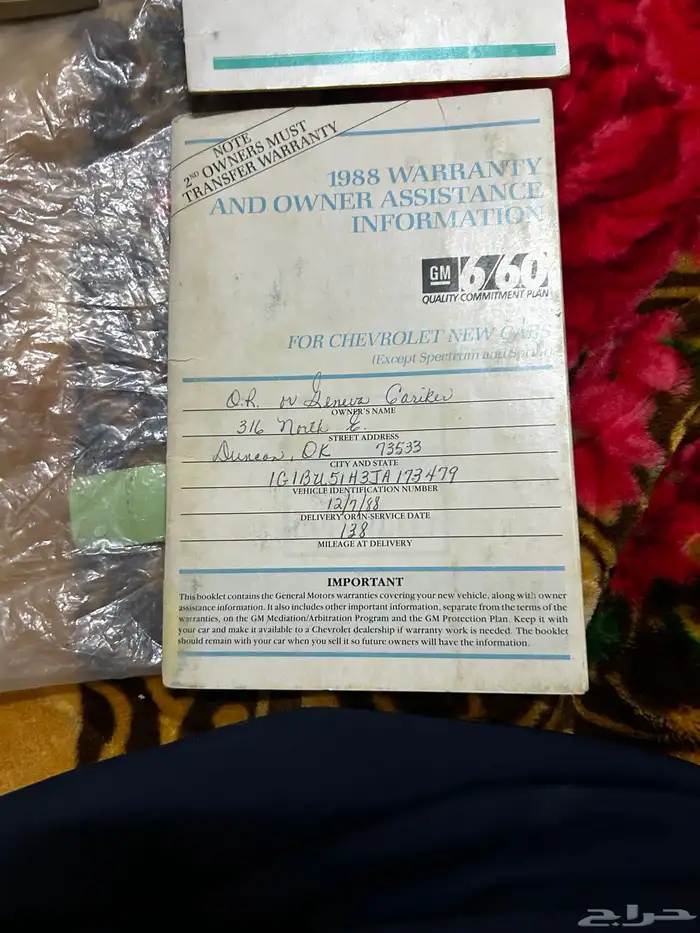 NOTE
2ND OWNERS MUST
TRANSFER WARRANTY
1988 WARRANTY
AND OWNER ASSISTANCE
INFORMATION
GM 6/60
QUALITY COMMITMENT PLAN
FOR CHEVROLET NEW CARS
(Except Spectrum and Sprint)
O.R. or Geneva Cariker
OWNER'S NAME
316 North E.
STREET ADDRESS
Duncan, OK 73533
CITY AND STATE
1G1BU51H3JA173479
VEHICLE IDENTIFICATION NUMBER
12/7/88
DELIVERY OR IN-SERVICE DATE
138
MILEAGE AT DELIVERY
IMPORTANT
This booklet contains the General Motors warranties covering your new vehicle, along with owner
assistance information. It also includes other important information, separate from the terms of the
warranties, on the GM Mediation/Arbitration Program and the GM Protection Plan. Keep it with
your car and make it available to a Chevrolet dealership if warranty work is needed. The booklet
should remain with your car when you sell it so future owners will have the information.
حراج